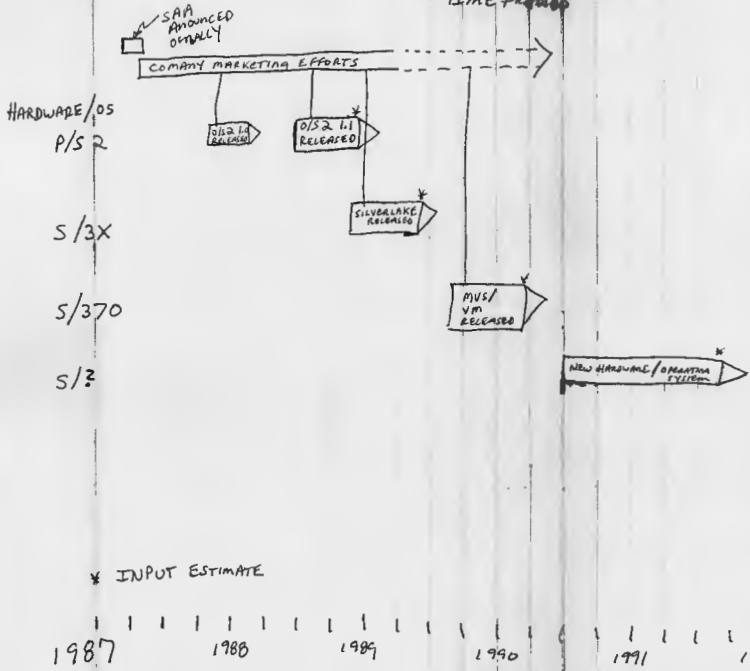 SAA
ANOUNCED
TIME
COMANY MARKETING EFFORTS
HARDWARE/OS
P/S 2
O/S 2 1.0
RELEASED
*
O/S 2 1.1
RELEASED
S/3X
*
SILVERLAKE
RELEASED
S/370
*
MVS/
VM
RELEASED
S/?
*
NEW HARDWARE/OPERATING
SYSTEM
* INPUT ESTIMATE
1987 1988 1989 1990 1991